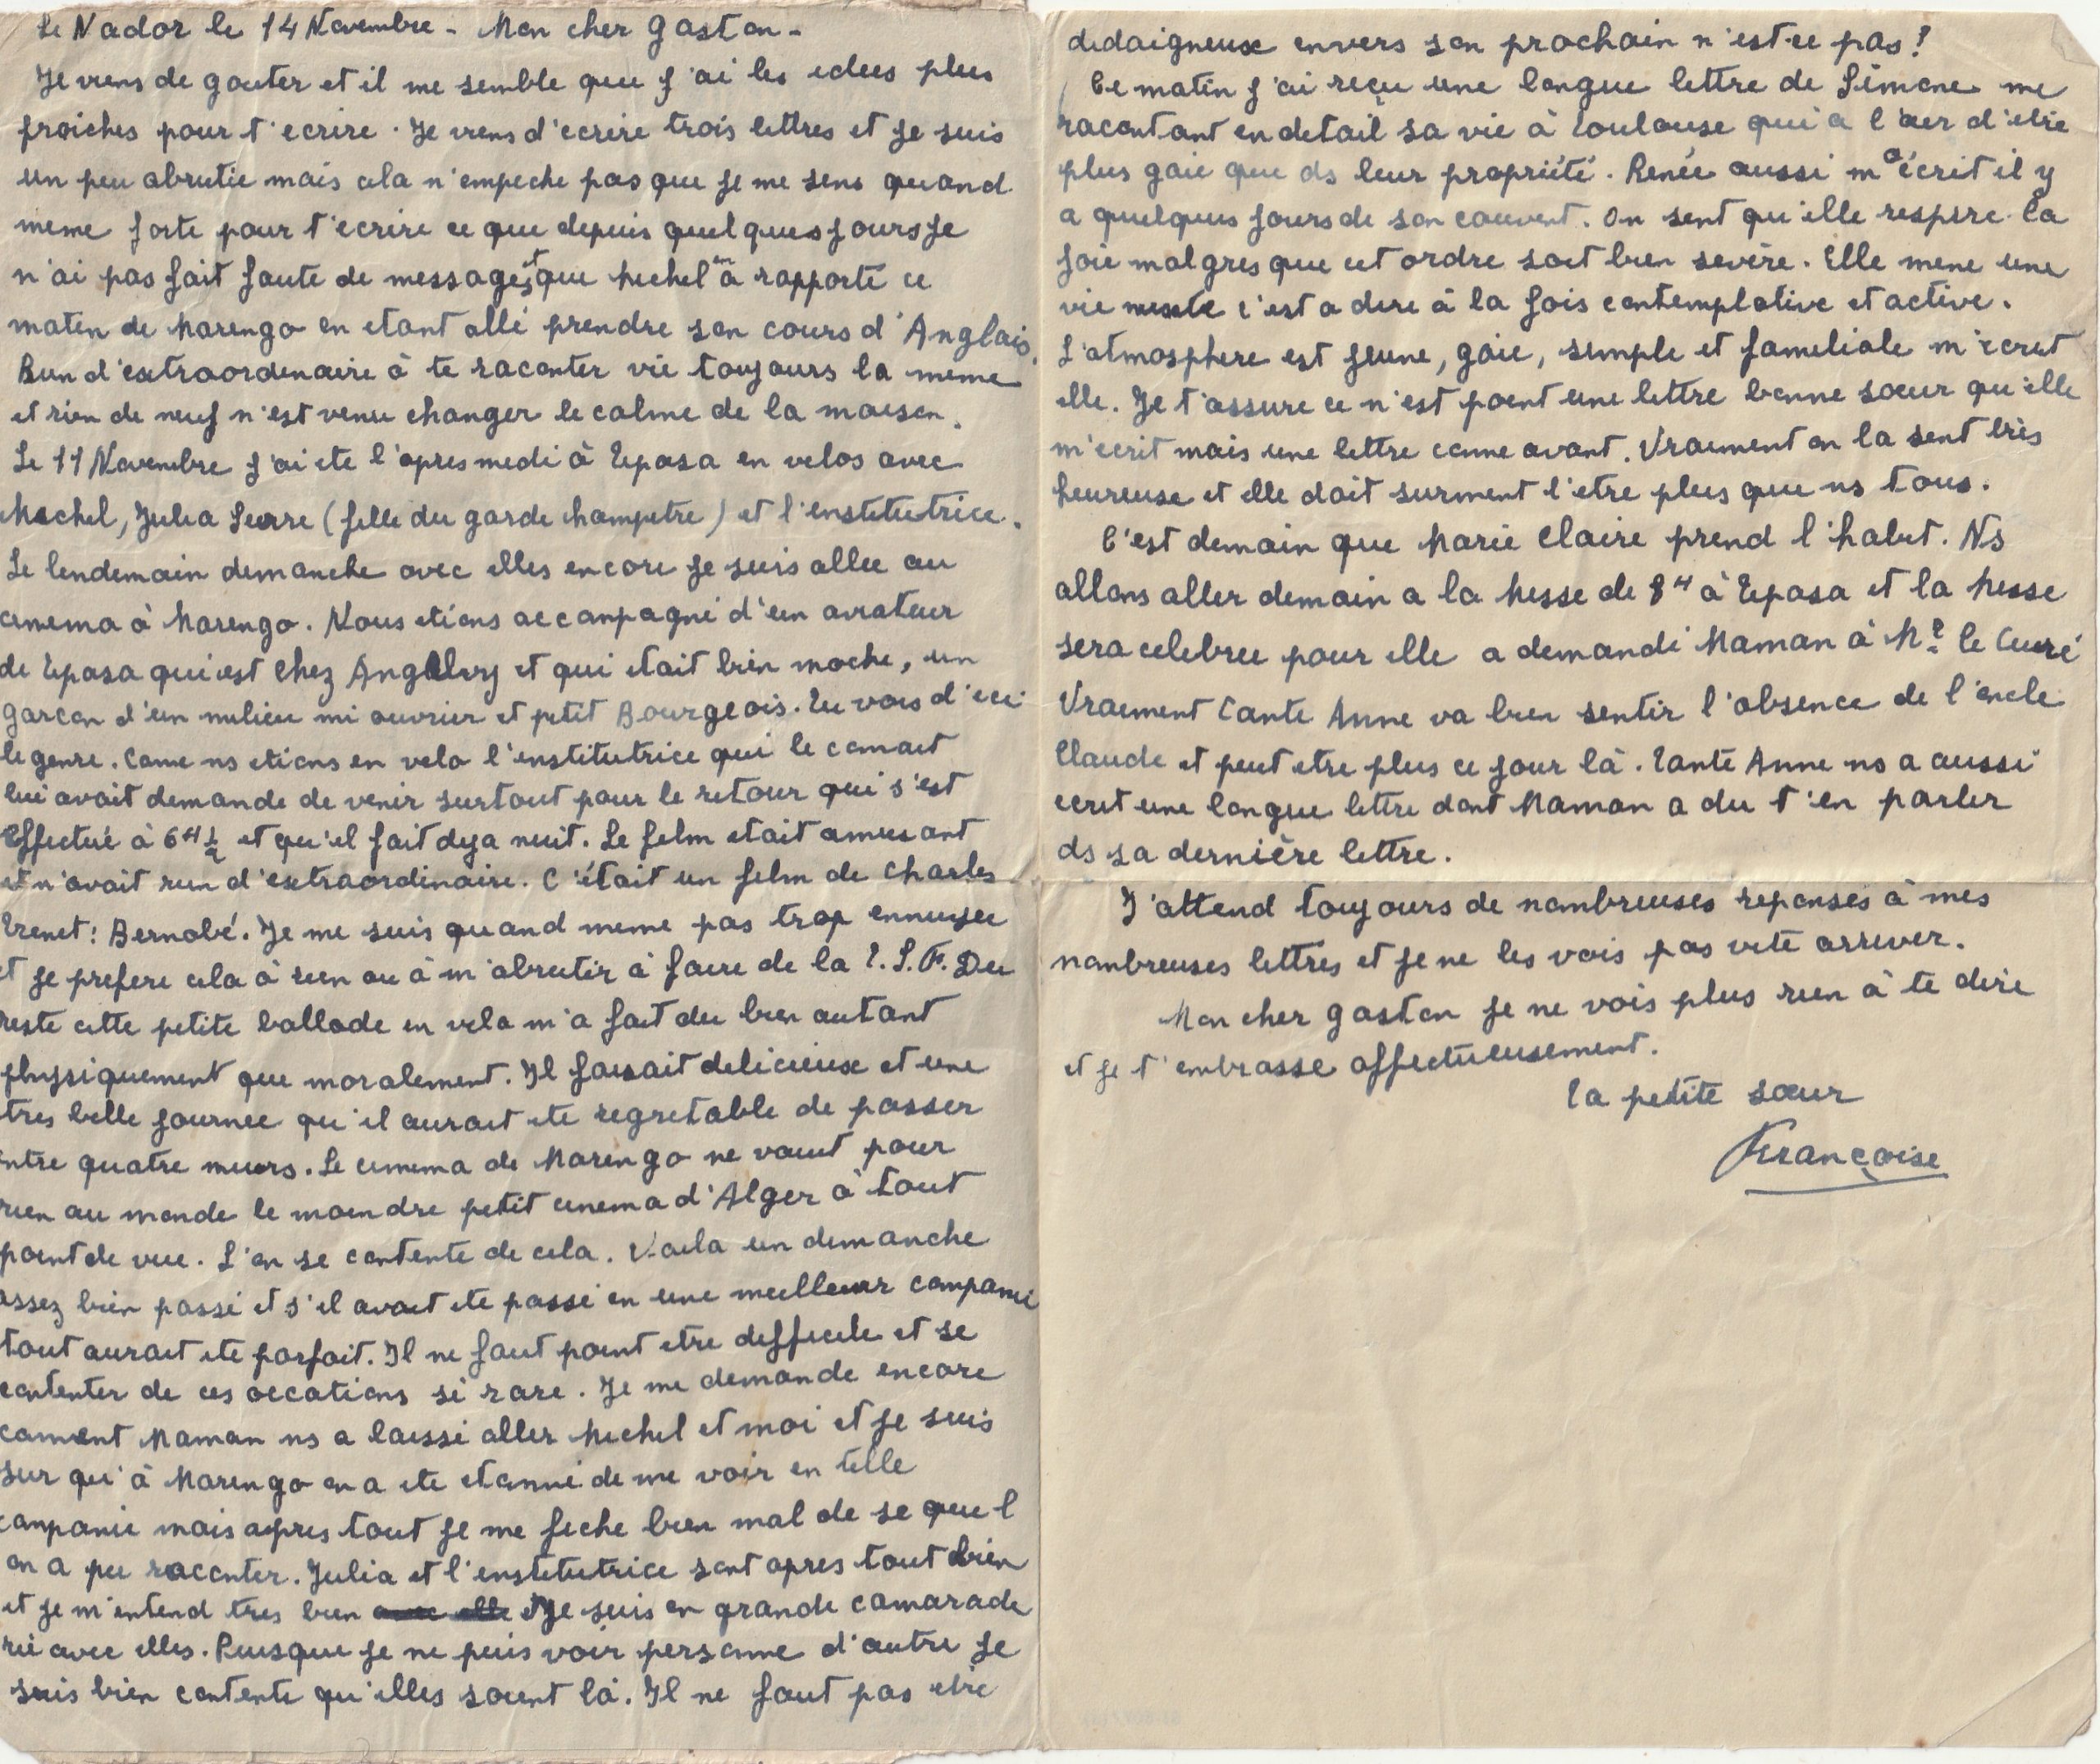 Le Nador le 14 Novembre - Mon cher Gaston -
Je viens de gouter et il me semble que j'ai les idees plus
fraiches pour t'ecrire. Je viens d'ecrire trois lettres et je suis
un peu abrutie mais cela n'empeche pas que je me sens quand
meme forte pour t'ecrire ce que depuis quelques jours je
n'ai pas fait faute de messages et que Michel en a rapporté ce
matin de Marengo en etant allé prendre son cours d'Anglais.
Rien d'extraordinaire à te raconter vie toujours la meme
et rien de neuf n'est venu changer le calme de la maison.
Le 11 Novembre j'ai ete l'apres midi à Tipasa en velos avec
Michel, Julia Serre (fille du garde champetre) et l'institutrice.
Le lendemain dimanche avec elles encore je suis allee au
cinema à Marengo. Nous etions accompagné d'un aviateur
de Tipasa qui est chez Angelvy et qui etait bien moche, un
garcon d'un milieu mi ouvrier et petit Bourgeois. Tu vois d'ici
le genre. Come ns etions en velo l'institutrice qui le connait
lui avait demande de venir surtout pour le retour qui s'est
effectué à 6H ½ et qu'il fait deja nuit. Le film etait amusant
et n'avait rien d'extraordinaire. C'était un film de Charles
Trenet: Bernabé. Je me suis quand meme pas trop ennuyee
et je prefere cela à rien ou à m'abrutir à faire de la T.S.F. Du
reste cette petite ballade en velo m'a fait du bien autant
physiquement que moralement. Il faisait delicieux et une
tres belle journee qu'il aurait ete regretable de passer
entre quatre murs. Le cinema de Marengo ne vaut pour
rien au monde le moindre petit cinema d'Alger à tout
point de vue. L'on se contente de cela. Voila un dimanche
assez bien passé et s'il avait ete passé en une meilleur companie
tout aurait ete parfait. Il ne faut point etre difficile et se
contenter de ces occations si rare. Je me demande encore
coment Maman ns a laissé aller Michel et moi et je suis
sur qu'à Marengo on a ete etonné de me voir en telle
companie mais apres tout je me fiche bien mal de se que l
on a pu raconter. Julia et l'institutrice sont apres tout bien
et je m'entend tres bien avec elle et je suis en grande camarade
rie avec elles. Puisque je ne puis voir personne d'autre je
suis bien contente qu'elles soient là. Il ne faut pas etre
dedaigneuse envers son prochain n'est ce pas!
Ce matin j'ai reçu une longue lettre de Simone me
racontant en detail sa vie à Toulouse qui a l'air d'etre
plus gaie que ds leur propriété. Renée aussi m'a écrit il y
a quelques jours de son couvent. On sent qu'elle respire la
joie malgres que cet ordre soit bien sevère. Elle mene une
vie mixte c'est a dire à la fois contemplative et active.
L'atmosphere est jeune, gaie, simple et familiale m'ecrit
elle. Je t'assure ce n'est point une lettre bonne soeur qu'elle
m'ecrit mais une lettre come avant. Vraiment on la sent très
heureuse et elle doit surment l'etre plus que ns tous.
C'est demain que Marie Claire prend l'habit. Ns
allons aller demain a la Messe de 8H à Tipasa et la Messe
sera celebree pour elle a demandé Maman à Mr le Curé
Vraiment Tante Anne va bien sentir l'absence de l'oncle
Claude et peut etre plus ce jour là. Tante Anne ns a aussi
ecrit une longue lettre dont Maman a du t'en parler
ds sa dernière lettre.
J'attend toujours de nombreuses reponses à mes
nombreuses lettres et je ne les vois pas vite arriver.
Mon cher Gaston je ne vois plus rien à te dire
et je t'embrasse affectueusement.
Ta petite sœur
Françoise